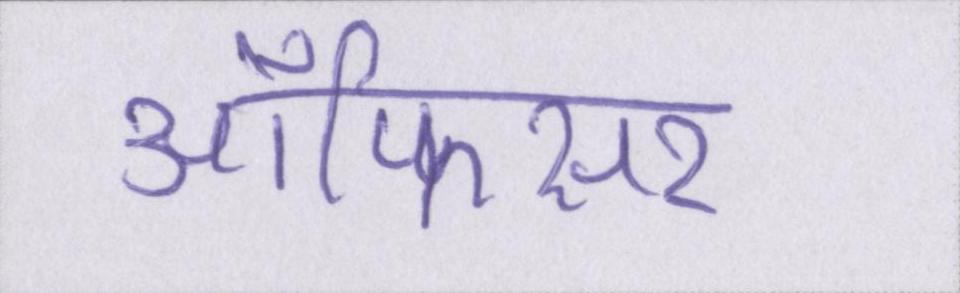 ऑफिसर